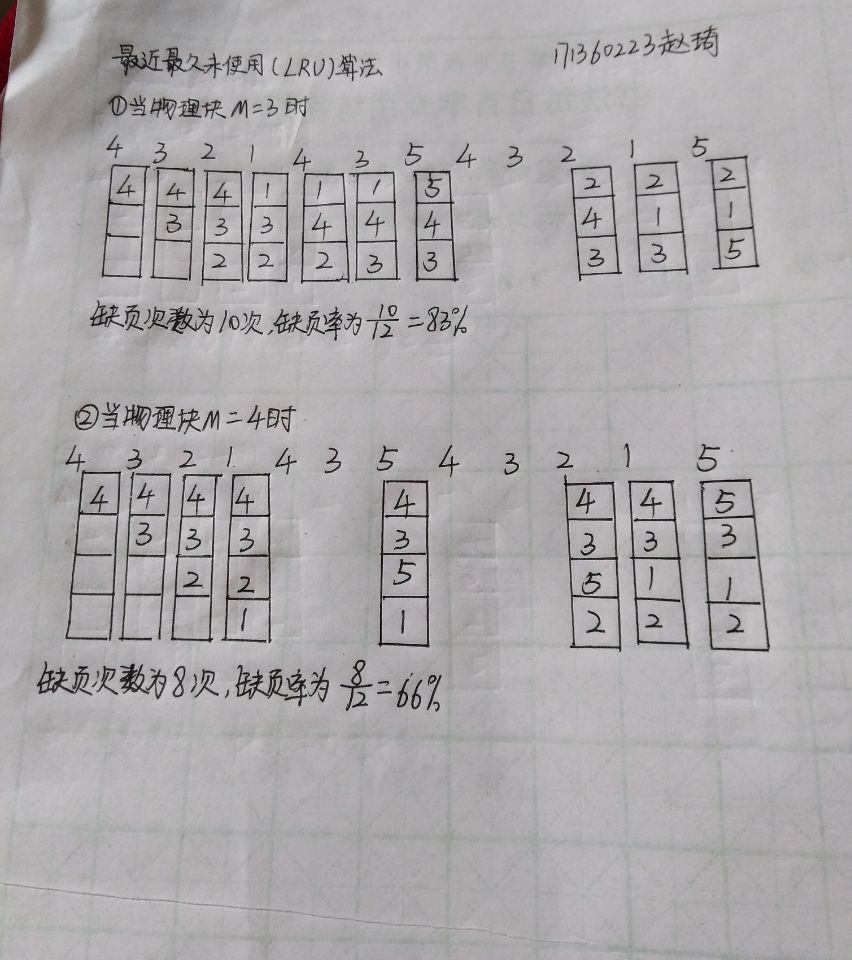 最近最久未使用(LRU)算法 171360223赵琦
①当物理块M=3时
4 3 2 1 4 3 5 4 3 2 1 5
4 4 4 1 1 1 5 2 2 2
3 3 3 4 4 4 4 1 1
2 2 2 3 3 3 3 5
缺页次数为10次,缺页率为10/12=83%
②当物理块M=4时
4 3 2 1 4 3 5 4 3 2 1 5
4 4 4 4 4 4 4 5
3 3 3 3 3 3 3
2 2 5 5 1 1
1 1 2 2 2
缺页次数为8次,缺页率为8/12=66%